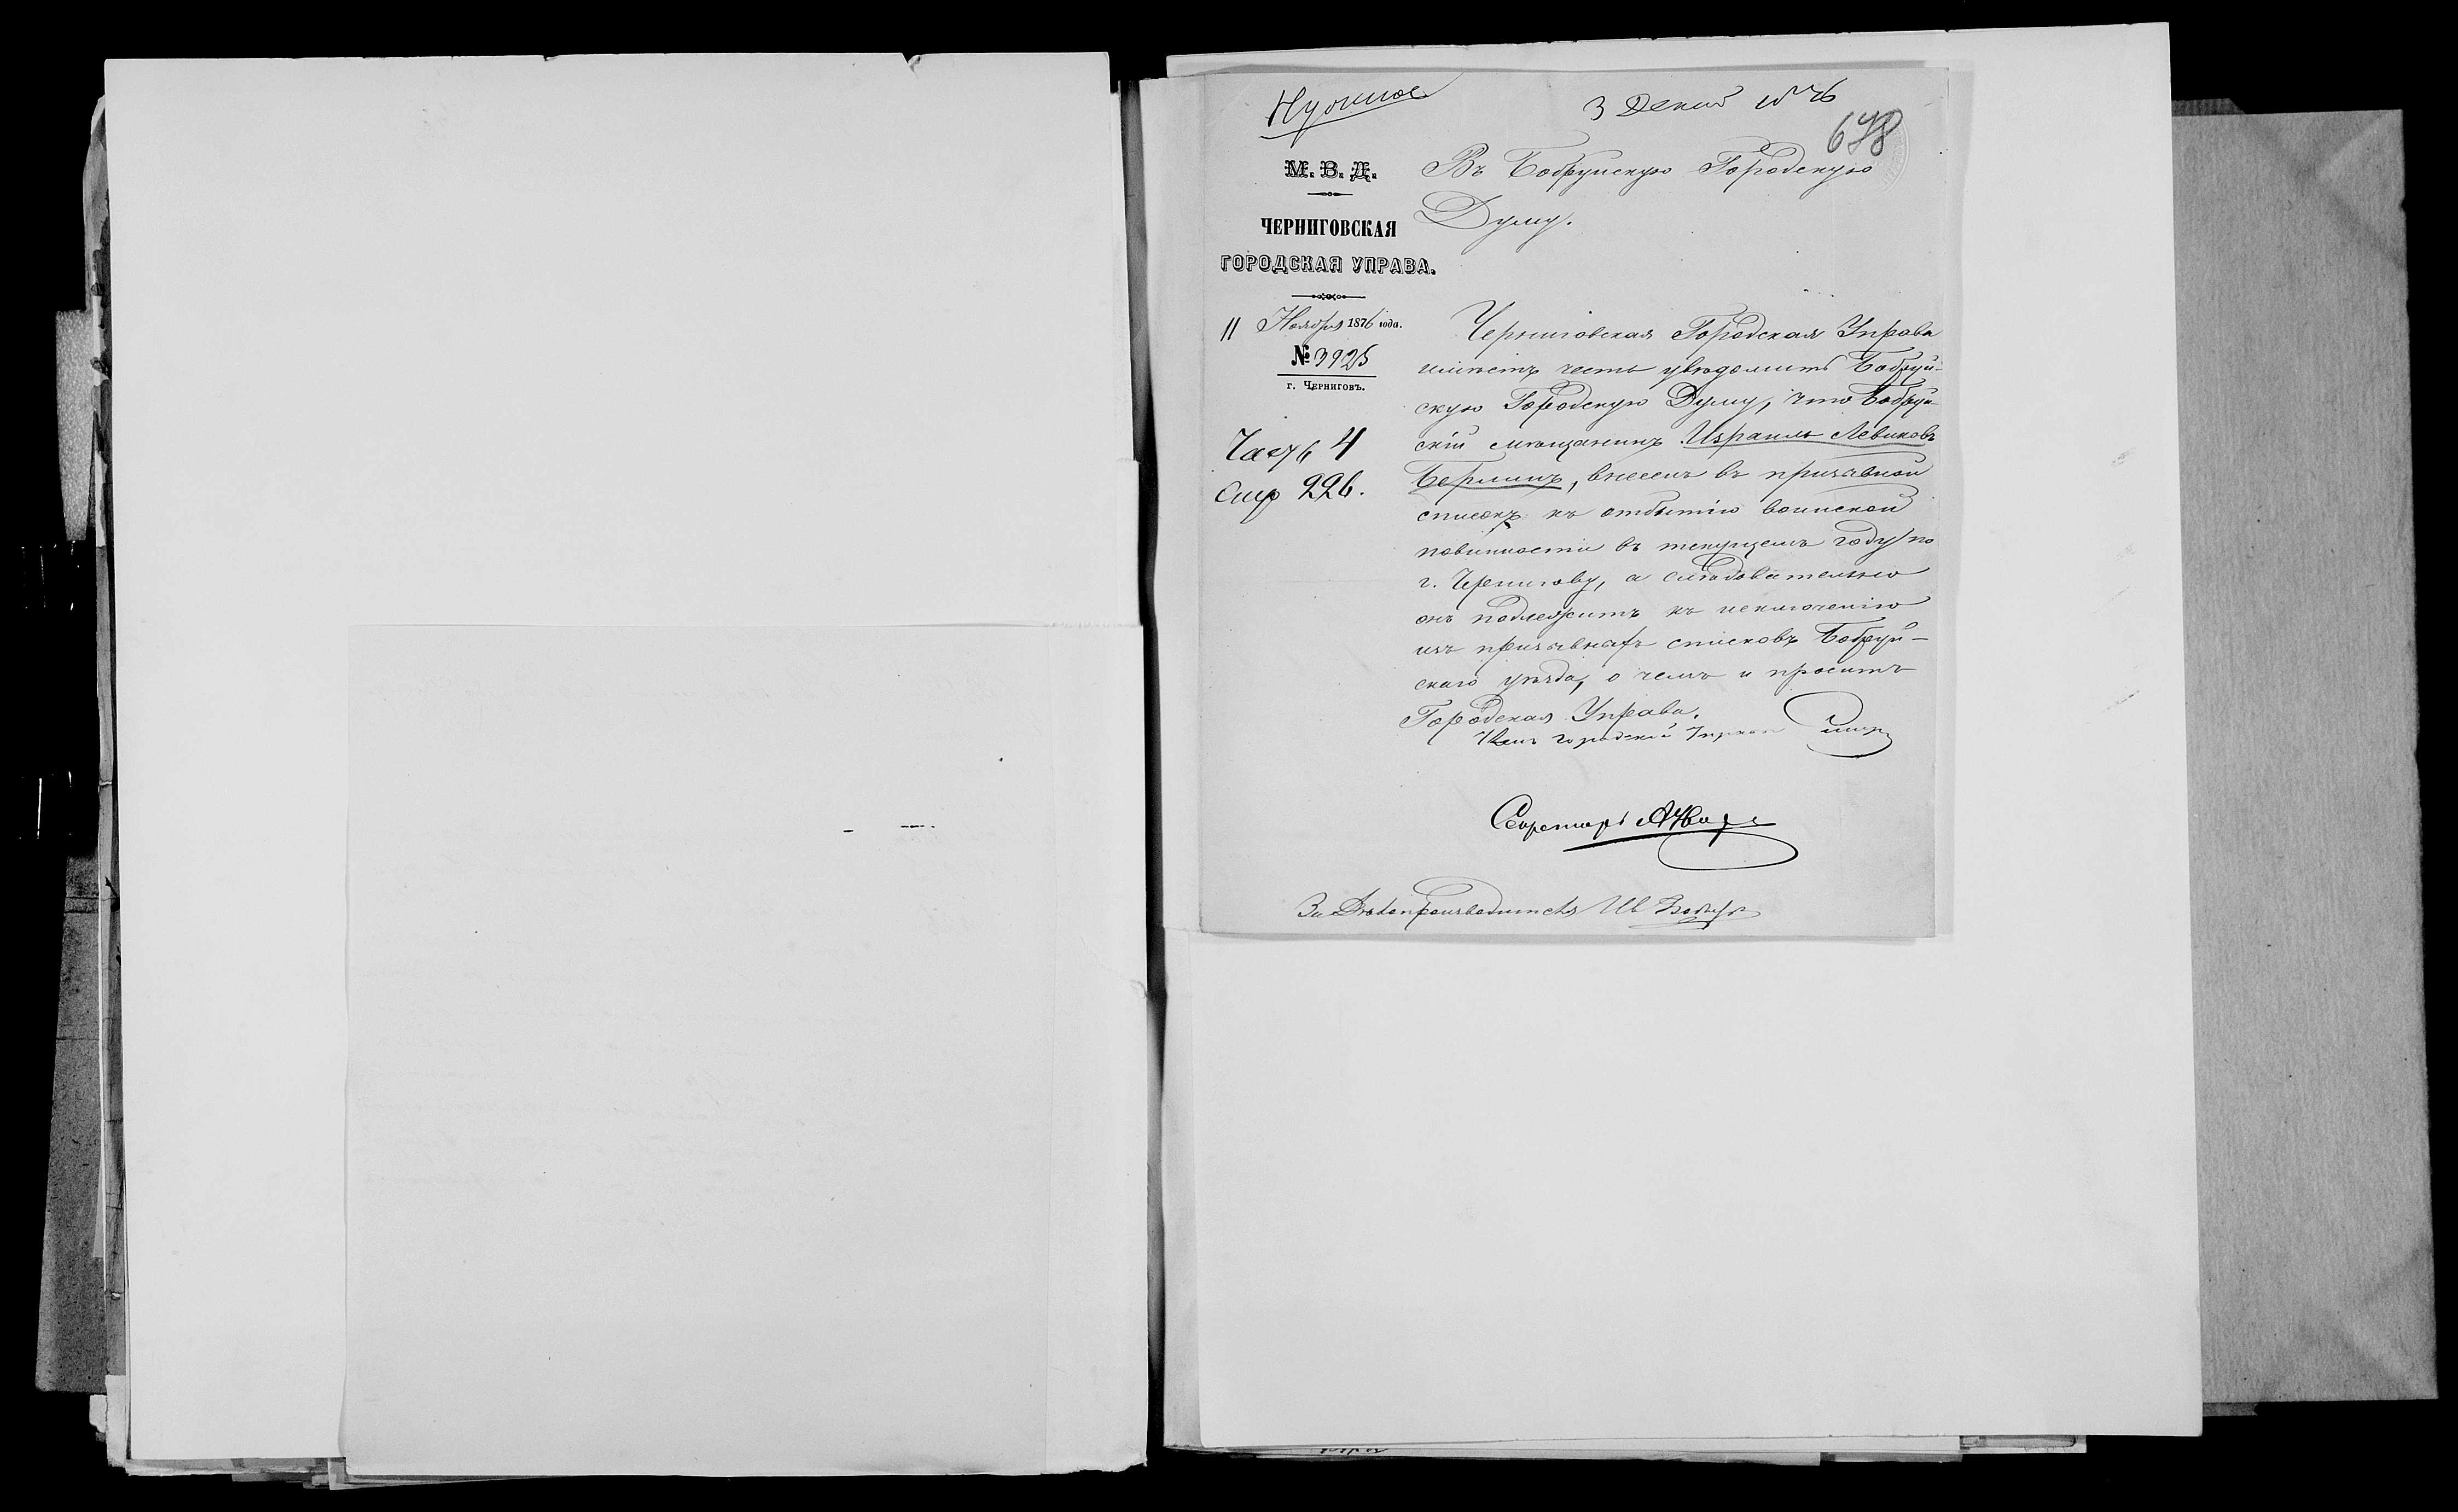 Нужное
3 Декаб 1876
678
М. В. Д.
ЧЕРНИГОВСКАЯ
ГОРОДСКАЯ УПРАВА.
11 Ноября 1876 года.
№ 3925
г. Черниговъ.
Часть 4
Стр 226.
Въ Бобруйскую Городскую
Думу.
Черниговская Городская Управа
имѣетъ честь увѣдомить Бобруй-
скую Городскую Думу, что Бобруй-
скій мѣщанинъ Израиль Левиковъ
Берлинъ, внесенъ въ призывной
списокъ къ отбытію воинской
повинности въ текущемъ году по
г. Чернигову, а слѣдовательно
онъ подлежитъ къ исключенію
изъ призывныхъ списковъ Бобруй-
скаго уѣзда, о чемъ и проситъ
Городская Управа.
Членъ Городской Управы
Секретарь
За Дѣлопроизводителя